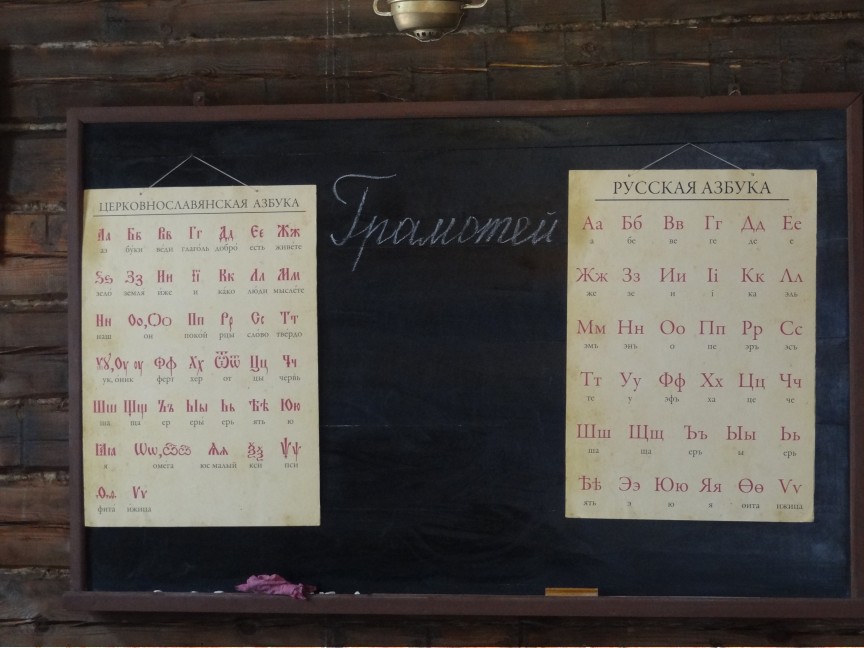 ЦЕРКОВНОСЛАВЯНСКАЯ АЗБУКА
Аа Бб Вв Гг Дд Єе Жж
аз буки веди глаголь добро есть живете
Ѕѕ Зз Ии Її Кк Лл Мм
зело земля иже и како люди мыслете
Нн Оо,Ѻѻ Пп Рр Сс Тт
наш он покой рцы слово твердо
Ꙋꙋ,Оу оу Фф Хх Ѿѿ Цц Чч
ук, оник ферт хер от цы червь
Шш Щщ Ъъ Ыы Ьь Ѣѣ Юю
ша ща ер еры ерь ять ю
Ꙗꙗ Ѡѡ,Ѽѽ Ѧѧ Ѯѯ Ѱѱ
я омега юс малый кси пси
Ѳѳ Ѵѵ
фита ижица
Грамотей
РУССКАЯ АЗБУКА
Аа Бб Вв Гг Дд Ее
а бе ве ге де е
Жж Зз Ии Іі Кк Лл
же зе и і ка эль
Мм Нн Оо Пп Рр Сс
эмъ энъ о пе эръ эсъ
Тт Уу Фф Хх Цц Чч
те у эфъ ха це че
Шш Щщ Ъъ Ыы Ьь
ша ща еръ ы ерь
Ѣѣ Ээ Юю Яя Ѳѳ Ѵѵ
ять э ю я ижица